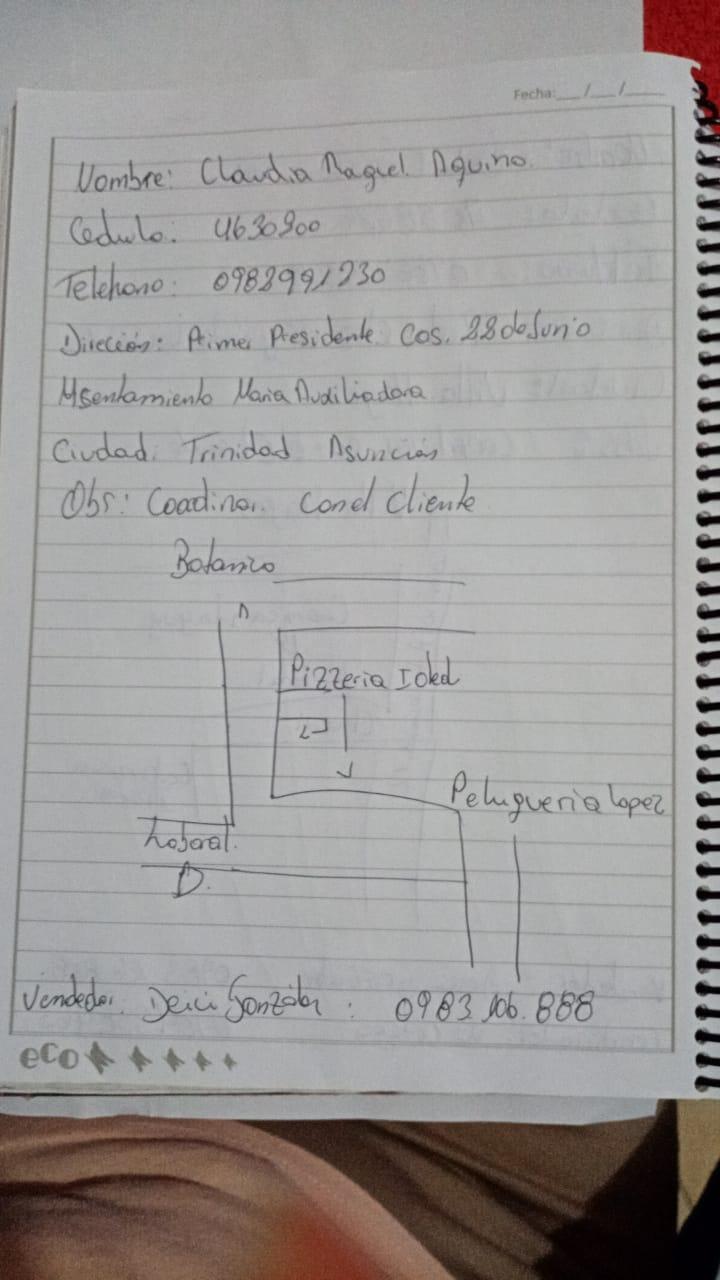 Fecha: __/__/__
Nombre: Claudia Raquel Aquino
Cedula: 4630900
Telehono: 0982991230
Direción: Primer Presidente Cos. 28 de Junio
Asentamiento Maria Auxiliadora
Ciudad: Trinidad Asunción
Obs: Coordinar con el Cliente
Botanico
Pizzeria
Peluqueria Lopez
D.
Vendedor. Deici González : 0983 106.888
eco